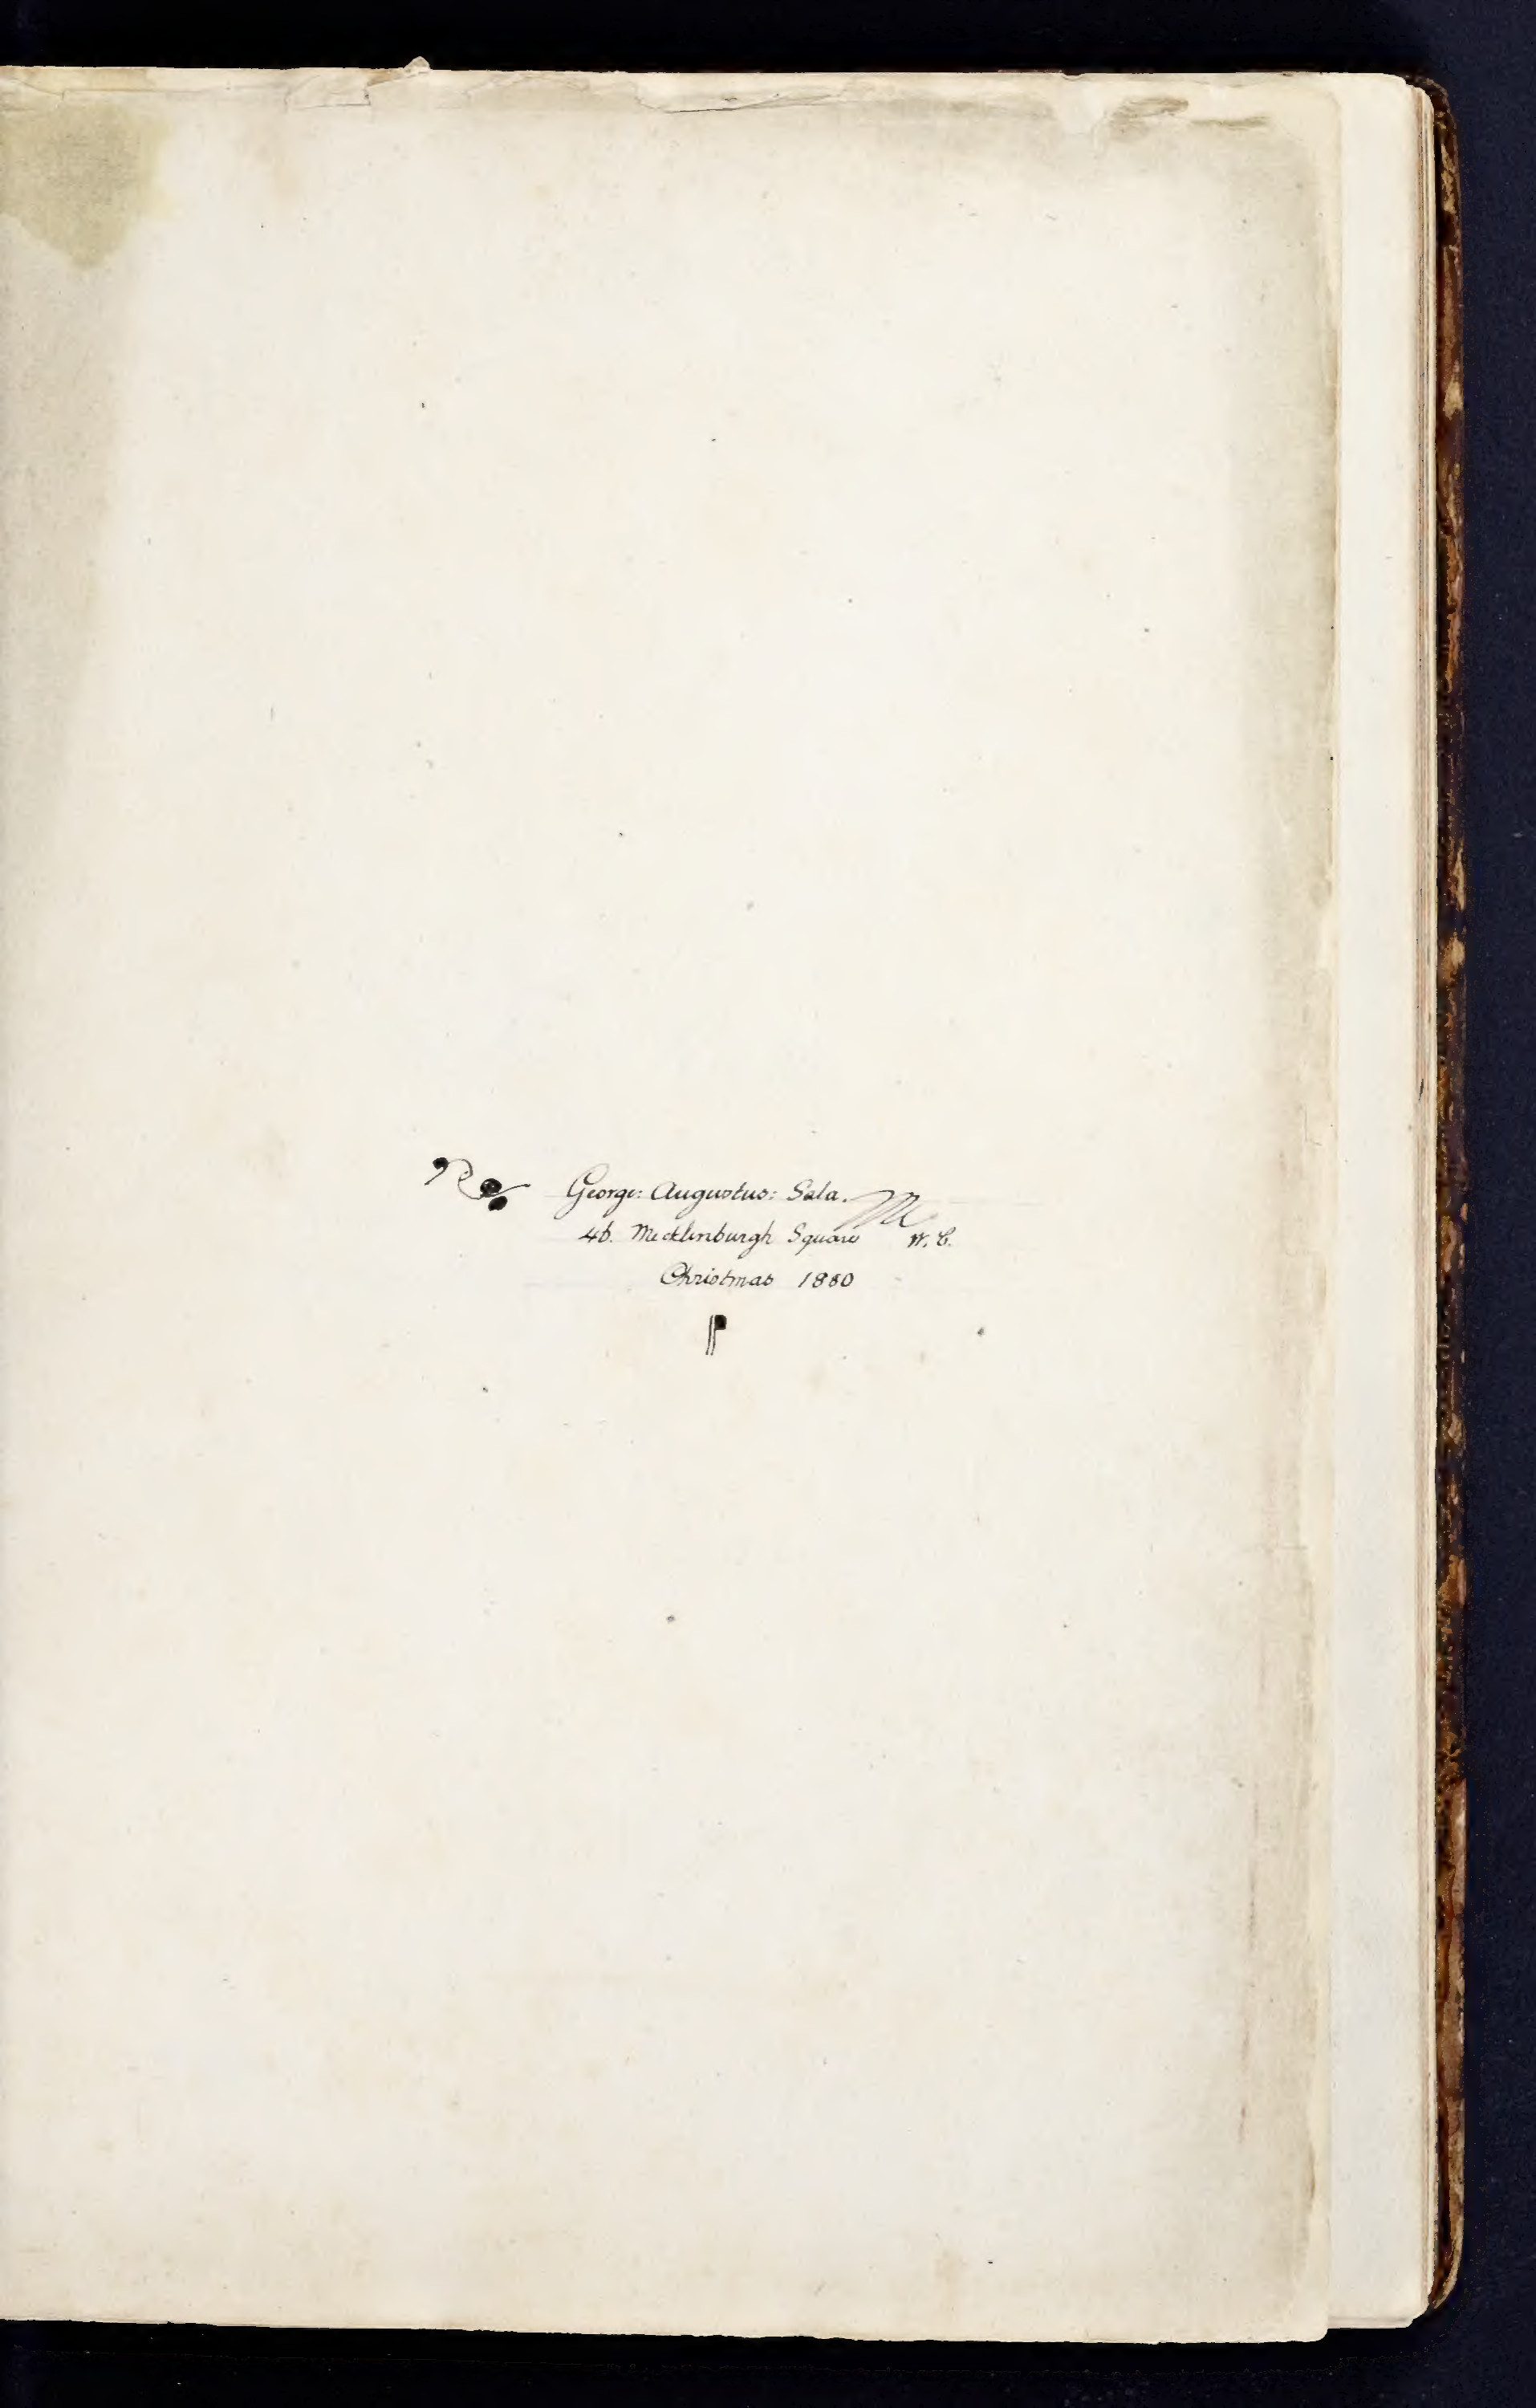 George: Augustus: Sala.
46. Mecklenburgh Square W.C.
Christmas 1880